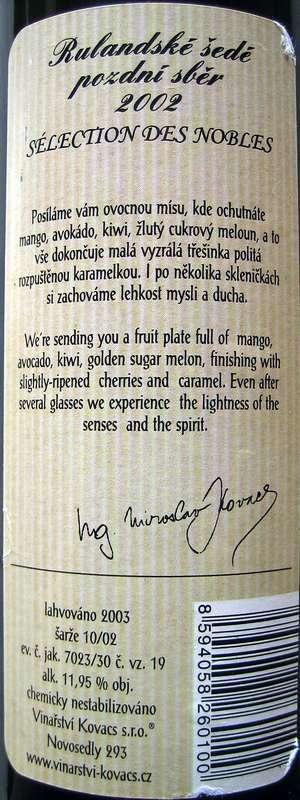 Rulandské šedé
pozdní sběr
2002
SÉLECTION DES NOBLES
Posíláme vám ovocnou mísu, kde ochutnáte
mango, avokádo, kiwi, žlutý cukrový meloun, a to
vše dokončuje malá vyzrálá třešinka politá
rozpuštěnou karamelkou. I po několika skleničkách
si zachováme lehkost mysli a ducha.
We´re sending you a fruit plate full of mango,
avocado, kiwi, golden sugar melon, finishing with
slightly-ripened cherries and caramel. Even after
several glasses we experience the lightness of the
senses and the spirit.
Ing. Miroslav Kovacs
lahvováno 2003
šarže 10/02
ev. č. jak. 7023/30 č. vz. 19
alk. 11,95 % obj.
chemicky nestabilizováno
Vinařství Kovacs s.r.o.®
Novosedly 293
www.vinarstvi-kovacs.cz
8594058260100